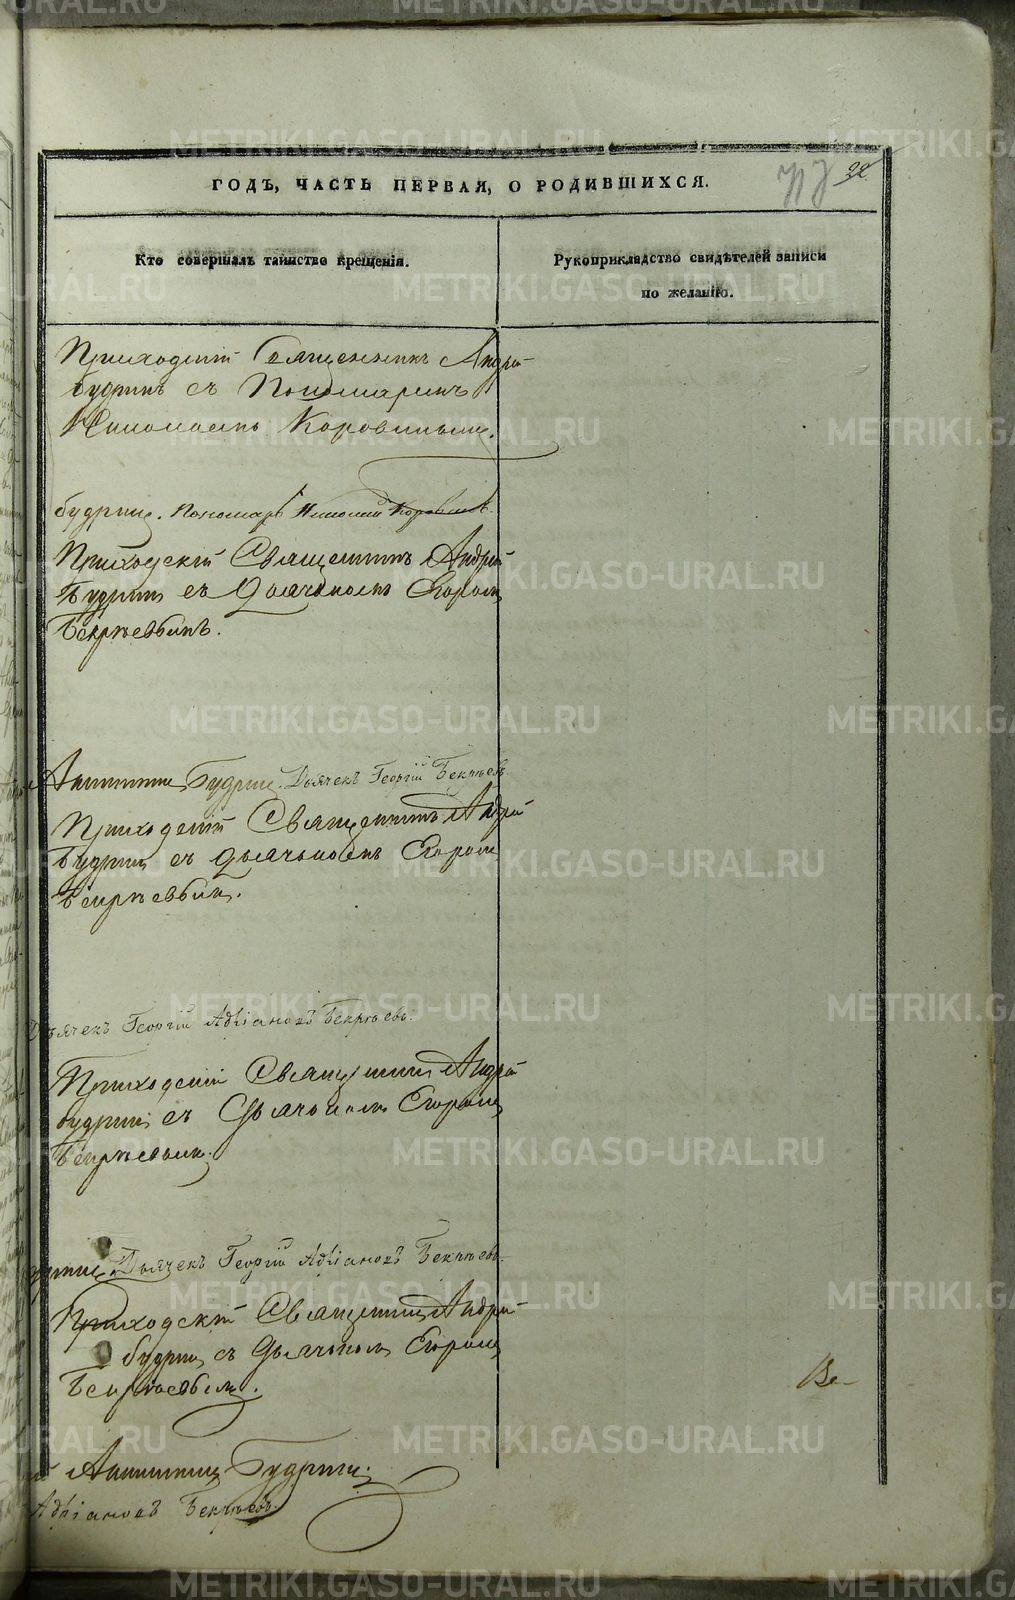 22
ГОДЪ, ЧАСТЬ ПЕРВАЯ, О РОДИВШИХСЯ.
Кто совершалъ таинство крещенія.
Рукоприкладство свидѣтелей записи
по желанію.
Приходскій Священникъ Андрей
Будринъ съ Пономаремъ
Николаемъ Коровинымъ.
Будринъ. Пономарь Николай Коровинъ.
Приходскій Священникъ Андрей
Будринъ съ Дьячькомъ Егоромъ
Бекрѣевымъ.
Будринъ. Дьячекъ Георгій Бекрѣевъ
Приходскій Священникъ Андрей
Будринъ съ дьячькомъ Егоромъ
Бекрѣевымъ.
Дьячекъ Георгій Адріановъ Бекрѣевъ.
Приходскій Священникъ Андрей
Будринъ съ Дьячькомъ Егоромъ
Бекрѣевымъ.
Дьячекъ Георгій Адріановъ Бекрѣевъ.
Приходскій Священникъ Андрей
Будринъ съ Дьячькомъ Егоромъ
Бекрѣевымъ.
Ве-
Будринъ.
Адріановъ Бекрѣевъ.
METRIKI.GASO-URAL.RU